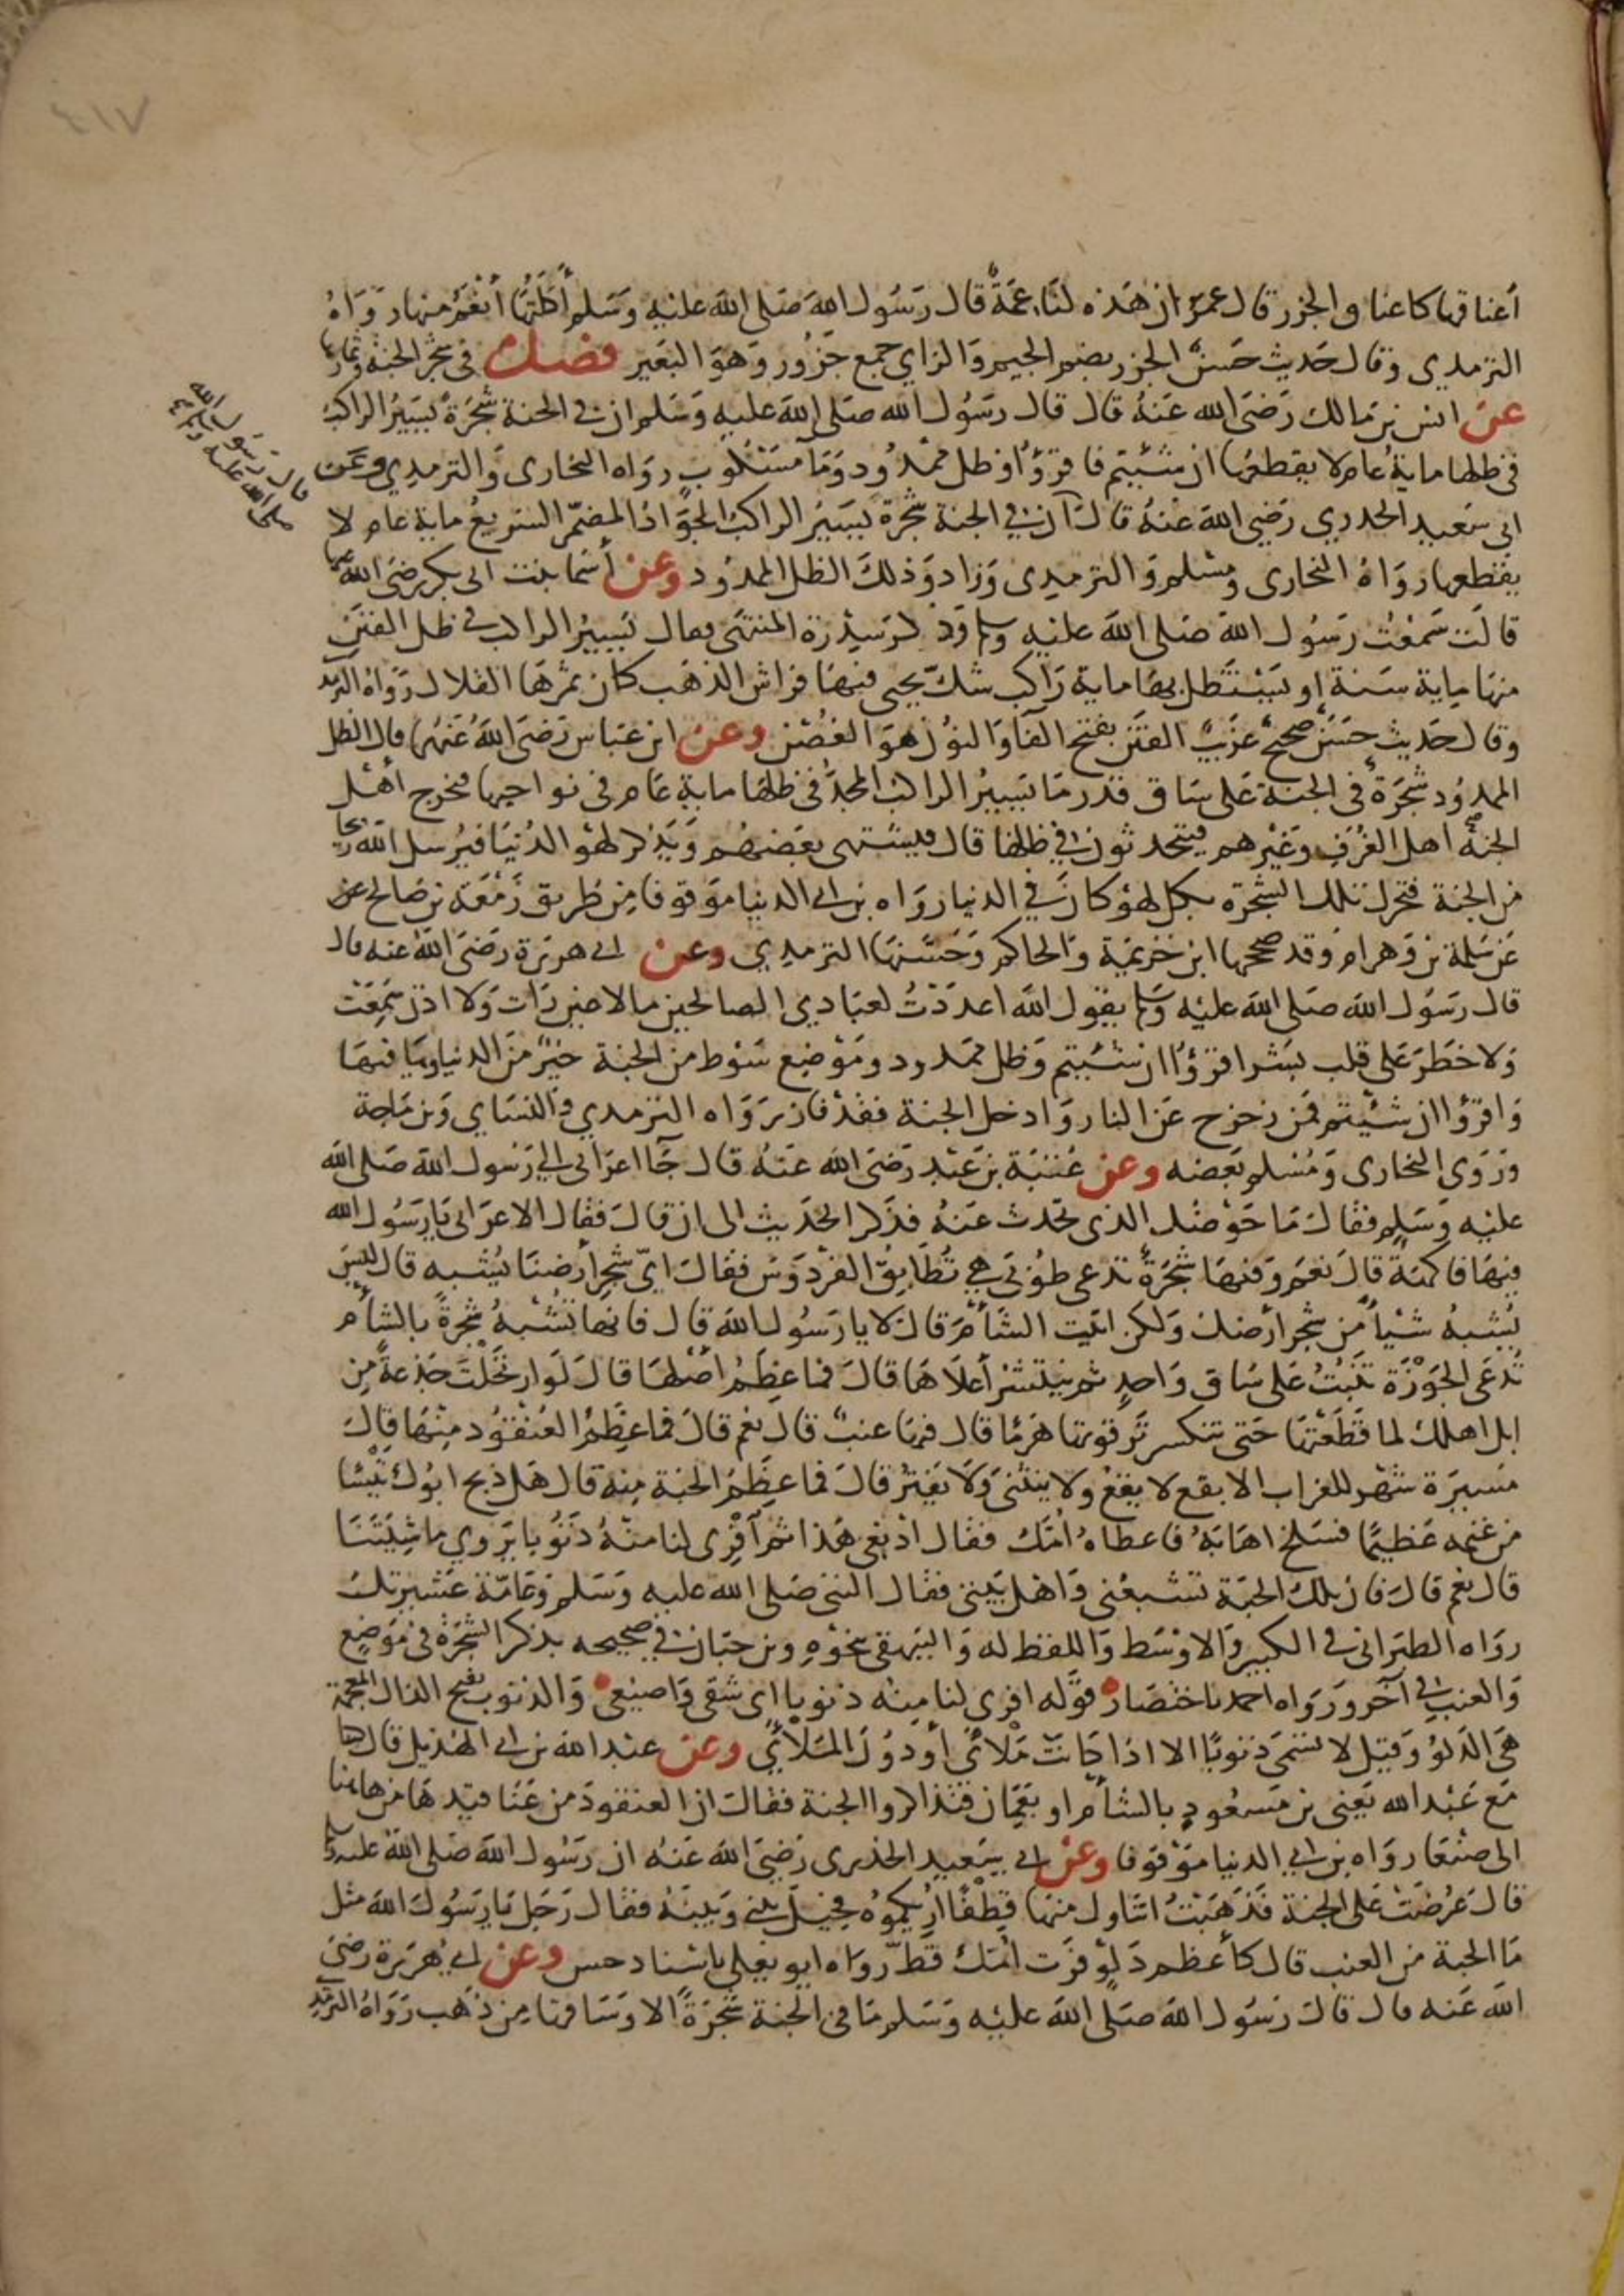 ٤١٧
أعناقها كاعناق الجزر قال عمر ان هذه لناعمة قال رسول الله صلى الله عليه وسلم أكلتها أنعم منها رواه
الترمذي وقال حديث حسن الجزر بضم الجيم والزاي جمع جزور وهو البعير فصل في شجر الجنة وثمارها
عن انس بن مالك رضي الله عنه قال قال رسول الله صلى الله عليه وسلم ان في الجنة شجرة يسير الراكب
في ظلها ماية عام لا يقطعها ان شئتم فاقرؤا وظل ممدود وما مسكوب رواه البخارى والترمذي وعن
ابى سعيد الخدري رضي الله عنه قال ان في الجنة شجرة يسير الراكب الجواد المضمر السريع ماية عام لا
قال رسول الله
صلى الله عليه وسلم
يقطعها رواه البخارى ومسلم والترمذى وزاد وذلك الظل الممدود وعن أسما بنت ابى بكر رضي الله عنها
قالت سمعت رسول الله صلى الله عليه وسلم وذكر سدرة المنتهى فقال يسير الراكب في ظل الفنن
منها ماية سنة او يستظل بها ماية راكب شك يحيى فيها فراش الذهب كان ثمرها القلال رواه الترمذي
وقال حديث حسن صحيح غريب الفنن بفتح الفا والنون هو الغصن وعن ابن عباس رضي الله عنهما قال الظل
الممدود شجرة في الجنة على ساق قدر ما يسير الراكب المجد في ظلها ماية عام في نواحيها فيخرج أهل
الجنة اهل الغرف وغيرهم فيتحدثون في ظلها قال فيشتهى بعضهم ويذكر لهو الدنيا فيرسل الله ريحا
من الجنة فتحرك تلك الشجرة بكل لهو كان في الدنيا رواه بن ابى الدنيا موقوفا من طريق زمعة بن صالح عن
عن سلمة بن وهرام وقد صححها ابن خزيمة والحاكم وحسنها الترمذي وعن ابى هريرة رضي الله عنه قال
قال رسول الله صلى الله عليه وسلم يقول الله اعددت لعبادي الصالحين ما لا عين رات ولا اذن سمعت
ولا خطر على قلب بشر اقرؤا ان شئتم وظل ممدود وموضع سوط من الجنة خير من الدنيا وما فيها
واقرؤا ان شئتم فمن زحزح عن النار وادخل الجنة فقد فاز رواه الترمذي والنساي وبن ماجة
وروى البخارى ومسلم بعضه وعن عتبة بن عبد رضي الله عنه قال جا اعرابى الى رسول الله صلى الله
عليه وسلم فقال ما حوضك الذى تحدث عنه فذكر الحديث الى ان قال فقال الاعرابى يا رسول الله
فيها فاكهة قال نعم وفيها شجرة تدعى طوبى هي تطابق الفردوس فقال اى شجر أرضنا تشبه قال ليس
يشبه شيأ من شجر أرضك ولكن اتيت الشأم قال لا يا رسول الله قال فانها تشبه شجرة بالشأم
تدعى الجوزة تنبت على ساق واحد ثم ينتشر أعلاها قال فما عظم أصلها قال لو ارتحلت جذعة من
ابل اهلك لما قطعتها حتى تنكسر ترقوتها هرما قال فيها عنب قال نعم قال فما عظم العنقود منها قال
مسيرة شهر للغراب الابقع لا يقع ولا ينثنى ولا يفتر قال فما عظم الحبة منه قال هل ذبح ابوك تيسا
من غنمه عظيما فسلخ اهابه فاعطاه أمك فقال ادبغى هذا ثم أفرى لنا منه ذنوبا يروي ماشيتنا
قال نعم قال فان تلك الحبة تشبعنى واهل بيتى فقال النبى صلى الله عليه وسلم وعامة عشيرتك
رواه الطبرانى في الكبير والاوسط واللفظ له والبيهقى بنحوه وبن حبان في صحيحه بذكر الشجرة في موضع
والعنب في آخر ورواه احمد باختصار قوله افرى لنا منه ذنوبا اى شقى واصنعى والذنوب بفتح الذال المعجمة
هى الدلو وقيل لا تسمى ذنوبا الا اذا كانت ملأى أو دون الملأى وعن عبد الله بن ابى الهذيل قال كنا
مع عبد الله يعنى بن مسعود بالشأم او بعمان فتذاكروا الجنة فقال ان العنقود من عناقيدها من هاهنا
الى صنعا رواه بن ابى الدنيا موقوفا وعن ابى سعيد الخدرى رضي الله عنه ان رسول الله صلى الله عليه وسلم
قال عرضت على الجنة فذهبت اتناول منها قطفا اريكموه فحيل بينى وبينه فقال رجل يا رسول الله مثل
ما الحبة من العنب قال كأعظم دلو فرت امك قط رواه ابو يعلى باسناد حسن وعن ابى هريرة رضي
الله عنه قال قال رسول الله صلى الله عليه وسلم ما في الجنة شجرة الا وساقها من ذهب رواه الترمذي